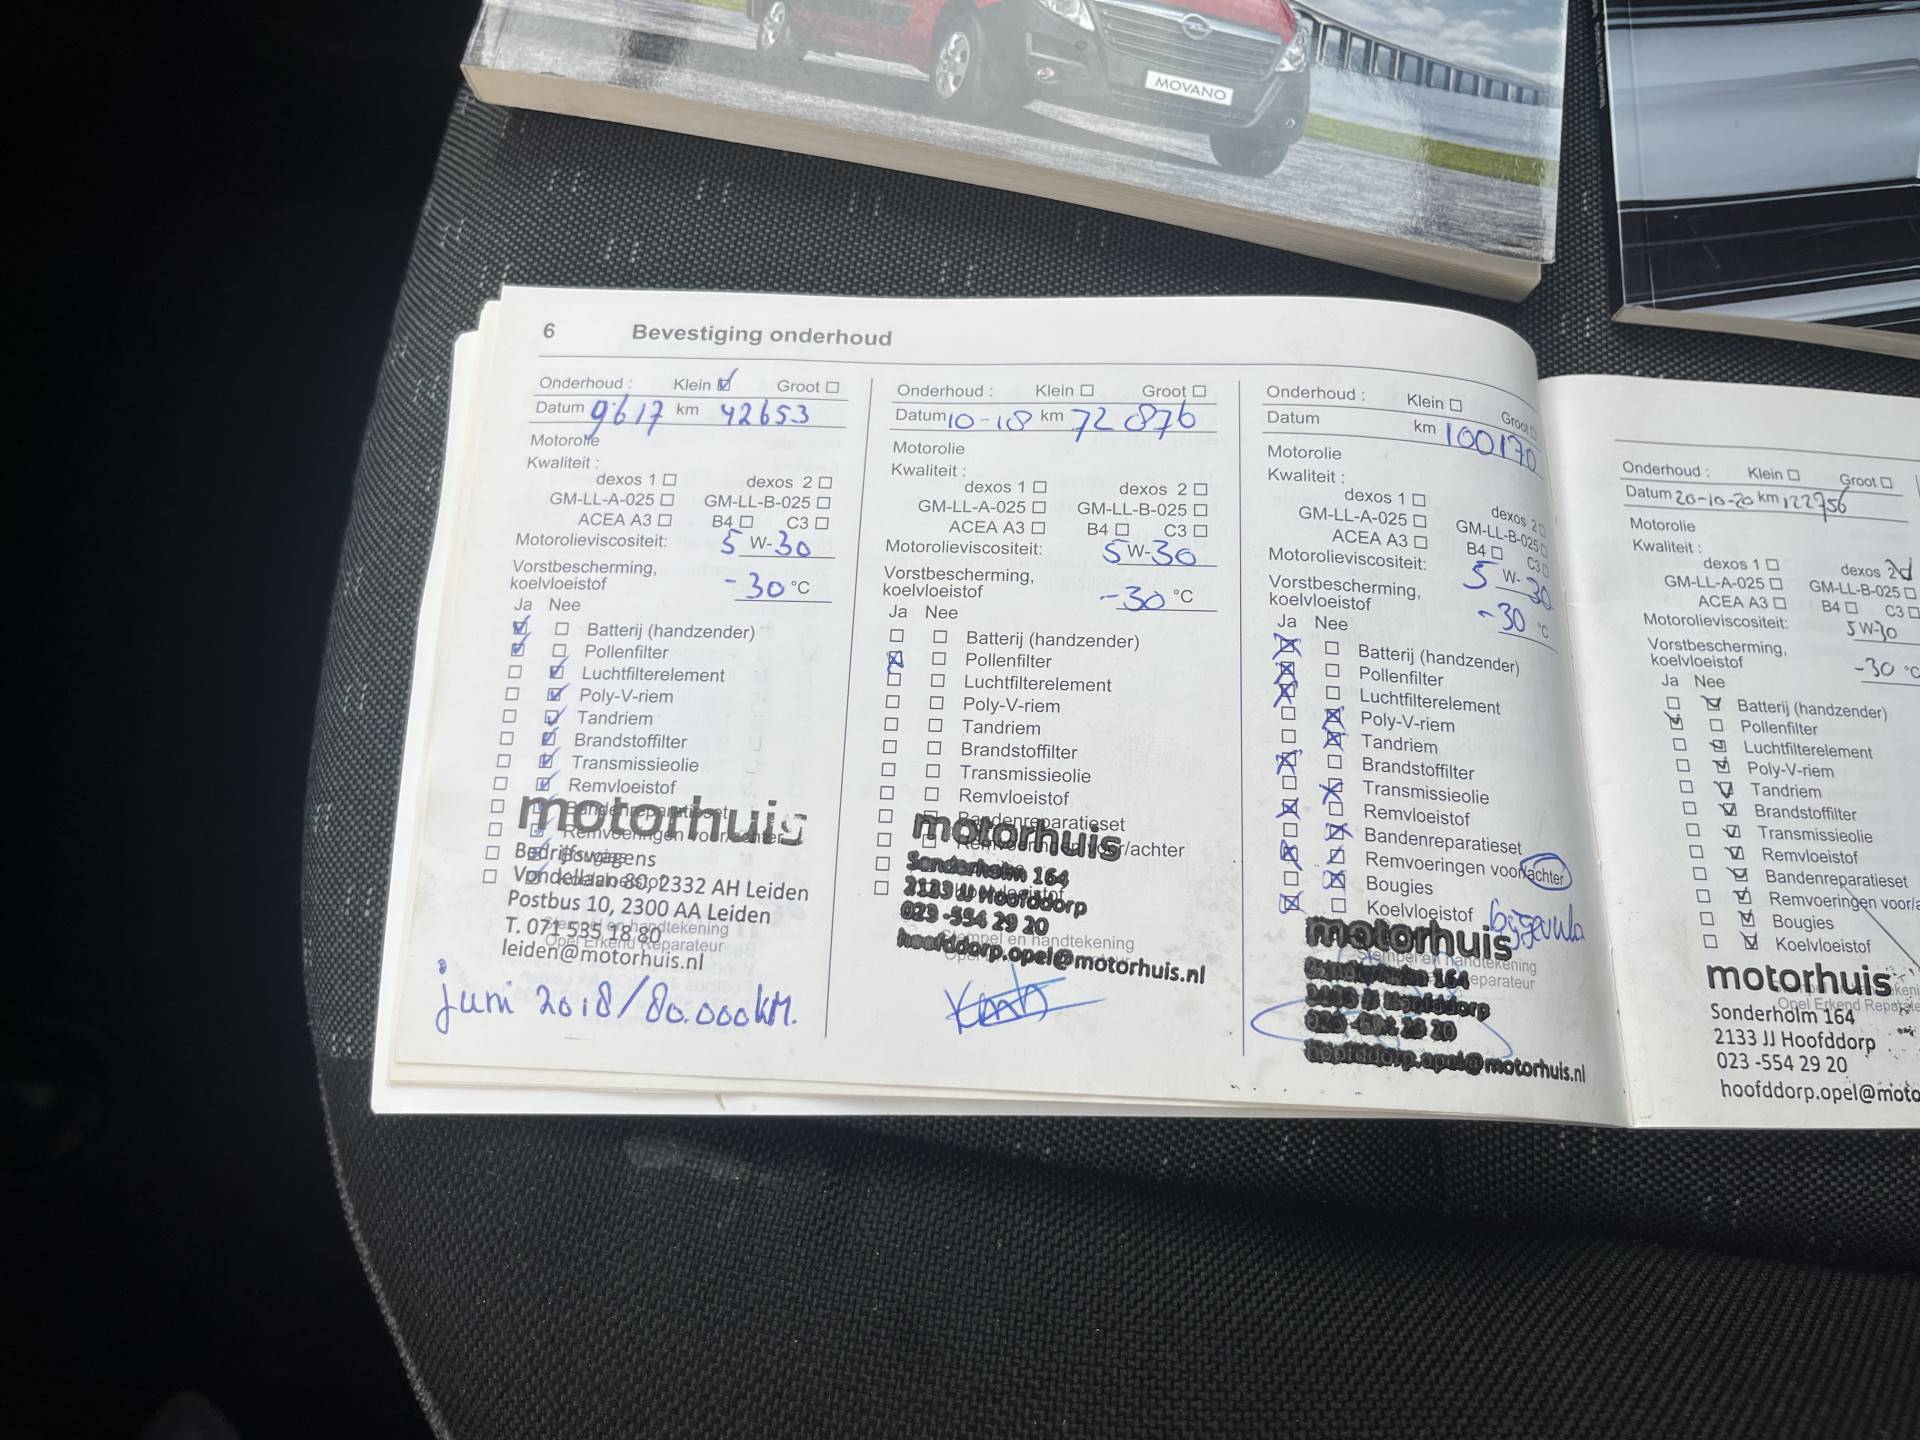 MOVANO
6 Bevestiging onderhoud
Onderhoud : Klein Groot
Datum 9617 km 42653
Motorolie
Kwaliteit :
dexos 1 dexos 2
GM-LL-A-025 GM-LL-B-025
ACEA A3 B4 C3
Motorolieviscositeit: 5 W-30
Vorstbescherming,
koelvloeistof -30 °C
Ja Nee
Batterij (handzender)
Pollenfilter
Luchtfilterelement
Poly-V-riem
Tandriem
Brandstoffilter
Transmissieolie
Remvloeistof
Bandenreparatieset
motorhuis
Remvoeringen voor/achter
Bedrijfswagens
Bougies
Vondellaan 80, 2332 AH Leiden
Koelvloeistof
Postbus 10, 2300 AA Leiden
Stempel en handtekening
T. 071 535 18 80
Opel Erkend Reparateur
leiden@motorhuis.nl
juni 2018/80.000km.
Onderhoud : Klein Groot
Datum 10-18 km 72 876
Motorolie
Kwaliteit :
dexos 1 dexos 2
GM-LL-A-025 GM-LL-B-025
ACEA A3 B4 C3
Motorolieviscositeit: 5 W-30
Vorstbescherming,
koelvloeistof -30 °C
Ja Nee
Batterij (handzender)
Pollenfilter
Luchtfilterelement
Poly-V-riem
Tandriem
Brandstoffilter
Transmissieolie
Remvloeistof
Bandenreparatieset
motorhuis
Remvoeringen voor/achter
Sonderholm 164
2133 JJ Hoofddorp
023 -554 29 20
Stempel en handtekening
hoofddorp.opel@motorhuis.nl
Onderhoud : Klein Groot
Datum km 100170
Motorolie
Kwaliteit :
dexos 1 dexos 2
GM-LL-A-025 GM-LL-B-025
ACEA A3 B4 C3
Motorolieviscositeit: 5 W-30
Vorstbescherming,
koelvloeistof -30 °C
Ja Nee
Batterij (handzender)
Pollenfilter
Luchtfilterelement
Poly-V-riem
Tandriem
Brandstoffilter
Transmissieolie
Remvloeistof
Bandenreparatieset
Remvoeringen voor/achter
Bougies
Koelvloeistof
motorhuis
Stempel en handtekening
164
hoofddorp.opel@motorhuis.nl
Onderhoud : Klein Groot
Datum 20-10-20 km 122756
Motorolie
Kwaliteit :
dexos 1 dexos 2
GM-LL-A-025 GM-LL-B-025
ACEA A3 B4 C3
Motorolieviscositeit: 5W-30
Vorstbescherming,
koelvloeistof -30 °C
Ja Nee
Batterij (handzender)
Pollenfilter
Luchtfilterelement
Poly-V-riem
Tandriem
Brandstoffilter
Transmissieolie
Remvloeistof
Bandenreparatieset
Remvoeringen voor/a
Bougies
Koelvloeistof
motorhuis
Opel Erkend Reparate
Sonderholm 164
2133 JJ Hoofddorp
023 -554 29 20
hoofddorp.opel@moto